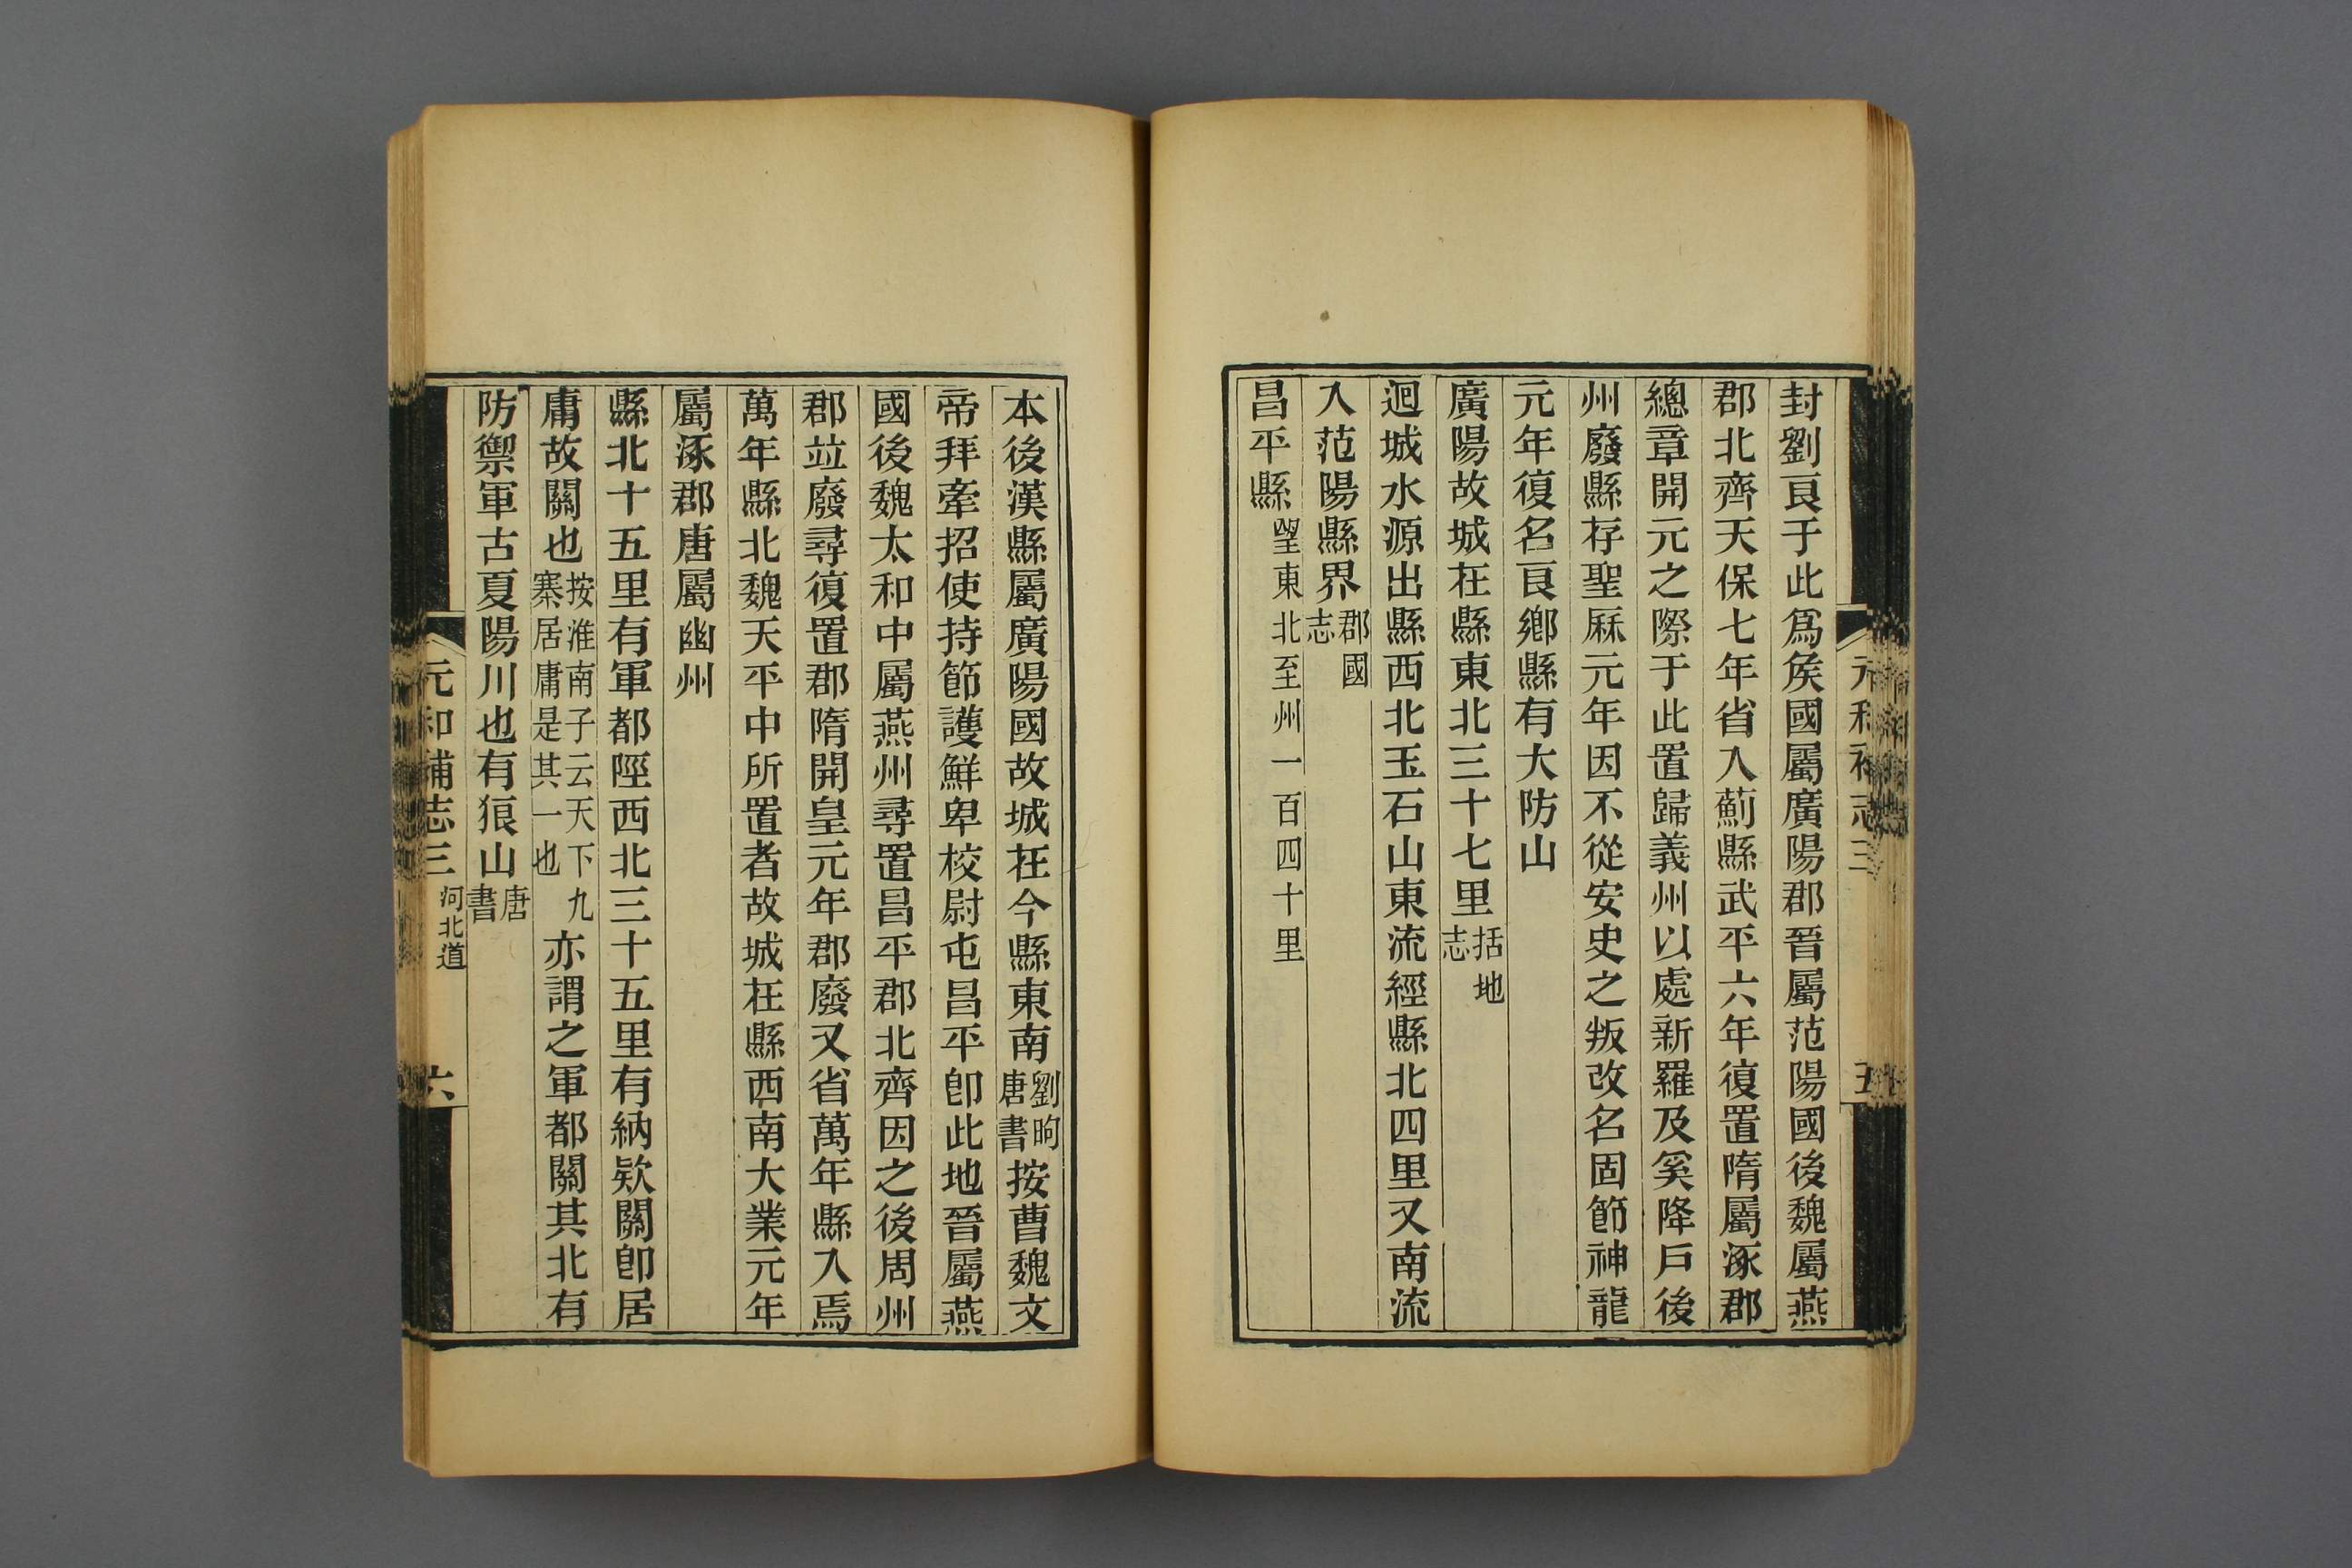 封劉良于此爲矦國屬廣陽郡晉屬范陽國後魏屬燕
郡北齊天保七年省入薊縣武平六年復置隋屬涿郡
總章開元之際于此置歸義州以處新羅及奚降戶後
州廢縣存聖厤元年因不從安史之叛改名固節神龍
元年復名良鄉縣有大防山
廣陽故城在縣東北三十七里括地志
迴城水源出縣西北玉石山東流經縣北四里又南流
入范陽縣界郡國志
昌平縣望東北至州一百四十里
元和補志三
五
本後漢縣屬廣陽國故城在今縣東南劉昫唐書按曹魏文
帝拜牽招使持節護鮮卑校尉屯昌平卽此地晉屬燕
國後魏太和中屬燕州尋置昌平郡北齊因之後周州
郡竝廢尋復置郡隋開皇元年郡廢又省萬年縣入焉
萬年縣北魏天平中所置者故城在縣西南大業元年
屬涿郡唐屬幽州
縣北十五里有軍都陘西北三十五里有納欵關卽居
庸故關也按淮南子云天下九寨居庸是其一也亦謂之軍都關其北有
防禦軍古夏陽川也有狼山唐書
元和補志三 河北道
六